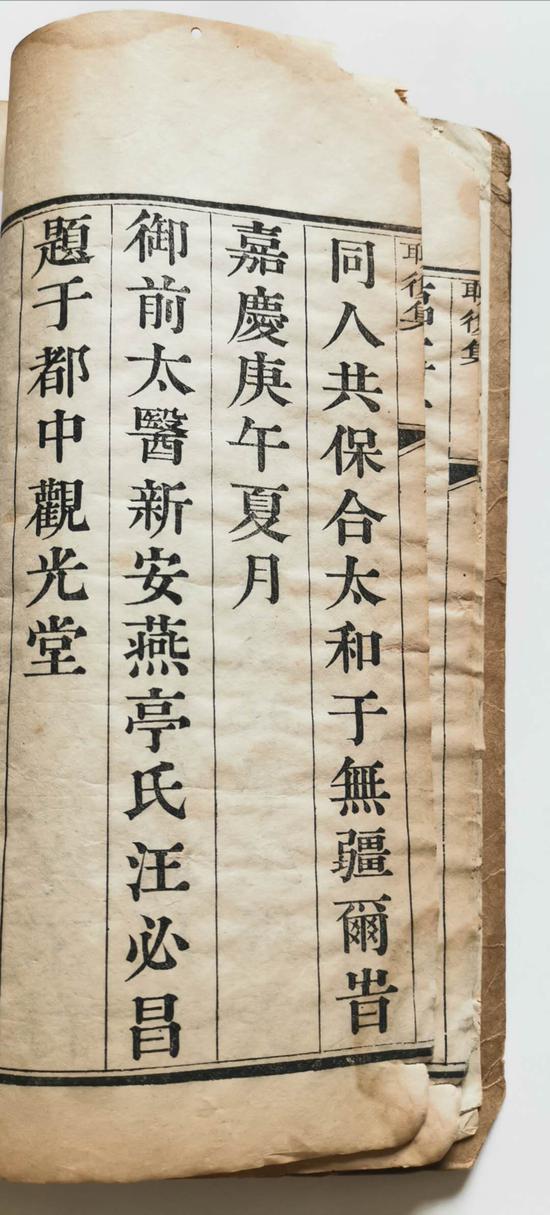 同人共保合太和于無疆爾旹
嘉慶庚午夏月
御前太醫新安燕亭氏汪必昌
題于都中觀光堂